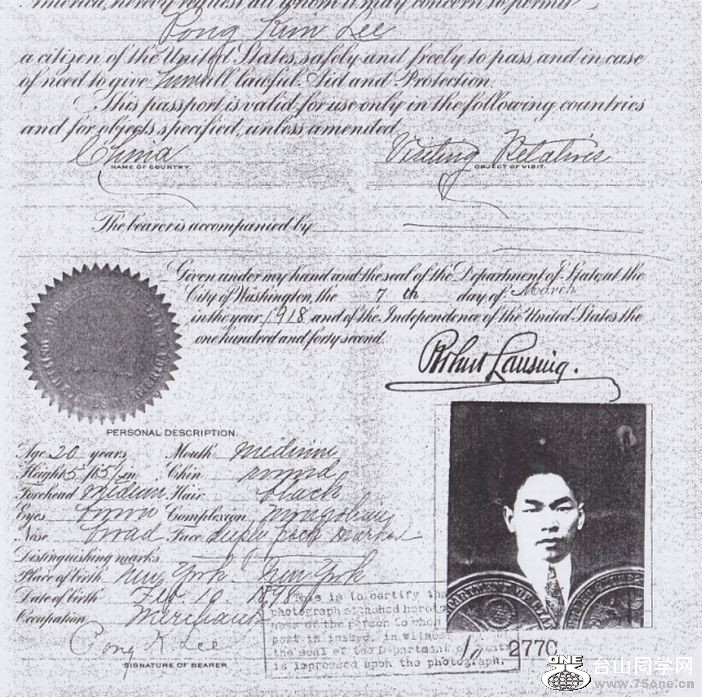 America, hereby request all whom it may concern to permit
Pong Kim Lee
a citizen of the United States, safely and freely to pass, and in case
of need to give him all lawful Aid and Protection.
This passport is valid for use only in the following countries
and for objects specified, unless amended.
China Visiting Relatives
NAME OF COUNTRY. OBJECT OF VISIT.
The bearer is accompanied by
Given under my hand and the seal of the Department of State, at the
City of Washington, the 7 th day of March
in the year 1918 and of the Independence of the United States the
one hundred and forty second.
Robert Lansing.
PERSONAL DESCRIPTION.
Age 20 years Mouth medium
Height 5 ft 5½ in Chin round
Forehead medium Hair black
Eyes brown Complexion mongolian
Nose broad Face deeply pock marked
Distinguishing marks
Place of birth New York New York
Date of birth Feb 10. 1898
Occupation Merchant
Pong K Lee
SIGNATURE OF BEARER
This is to certify tha
photograph attached hereto
of the person to who
port is issued, in witness
the seal of the Department of
is impressed upon the photograph.
DEPARTMENT OF
2770
ONE 台山同学网
www.75one.cn